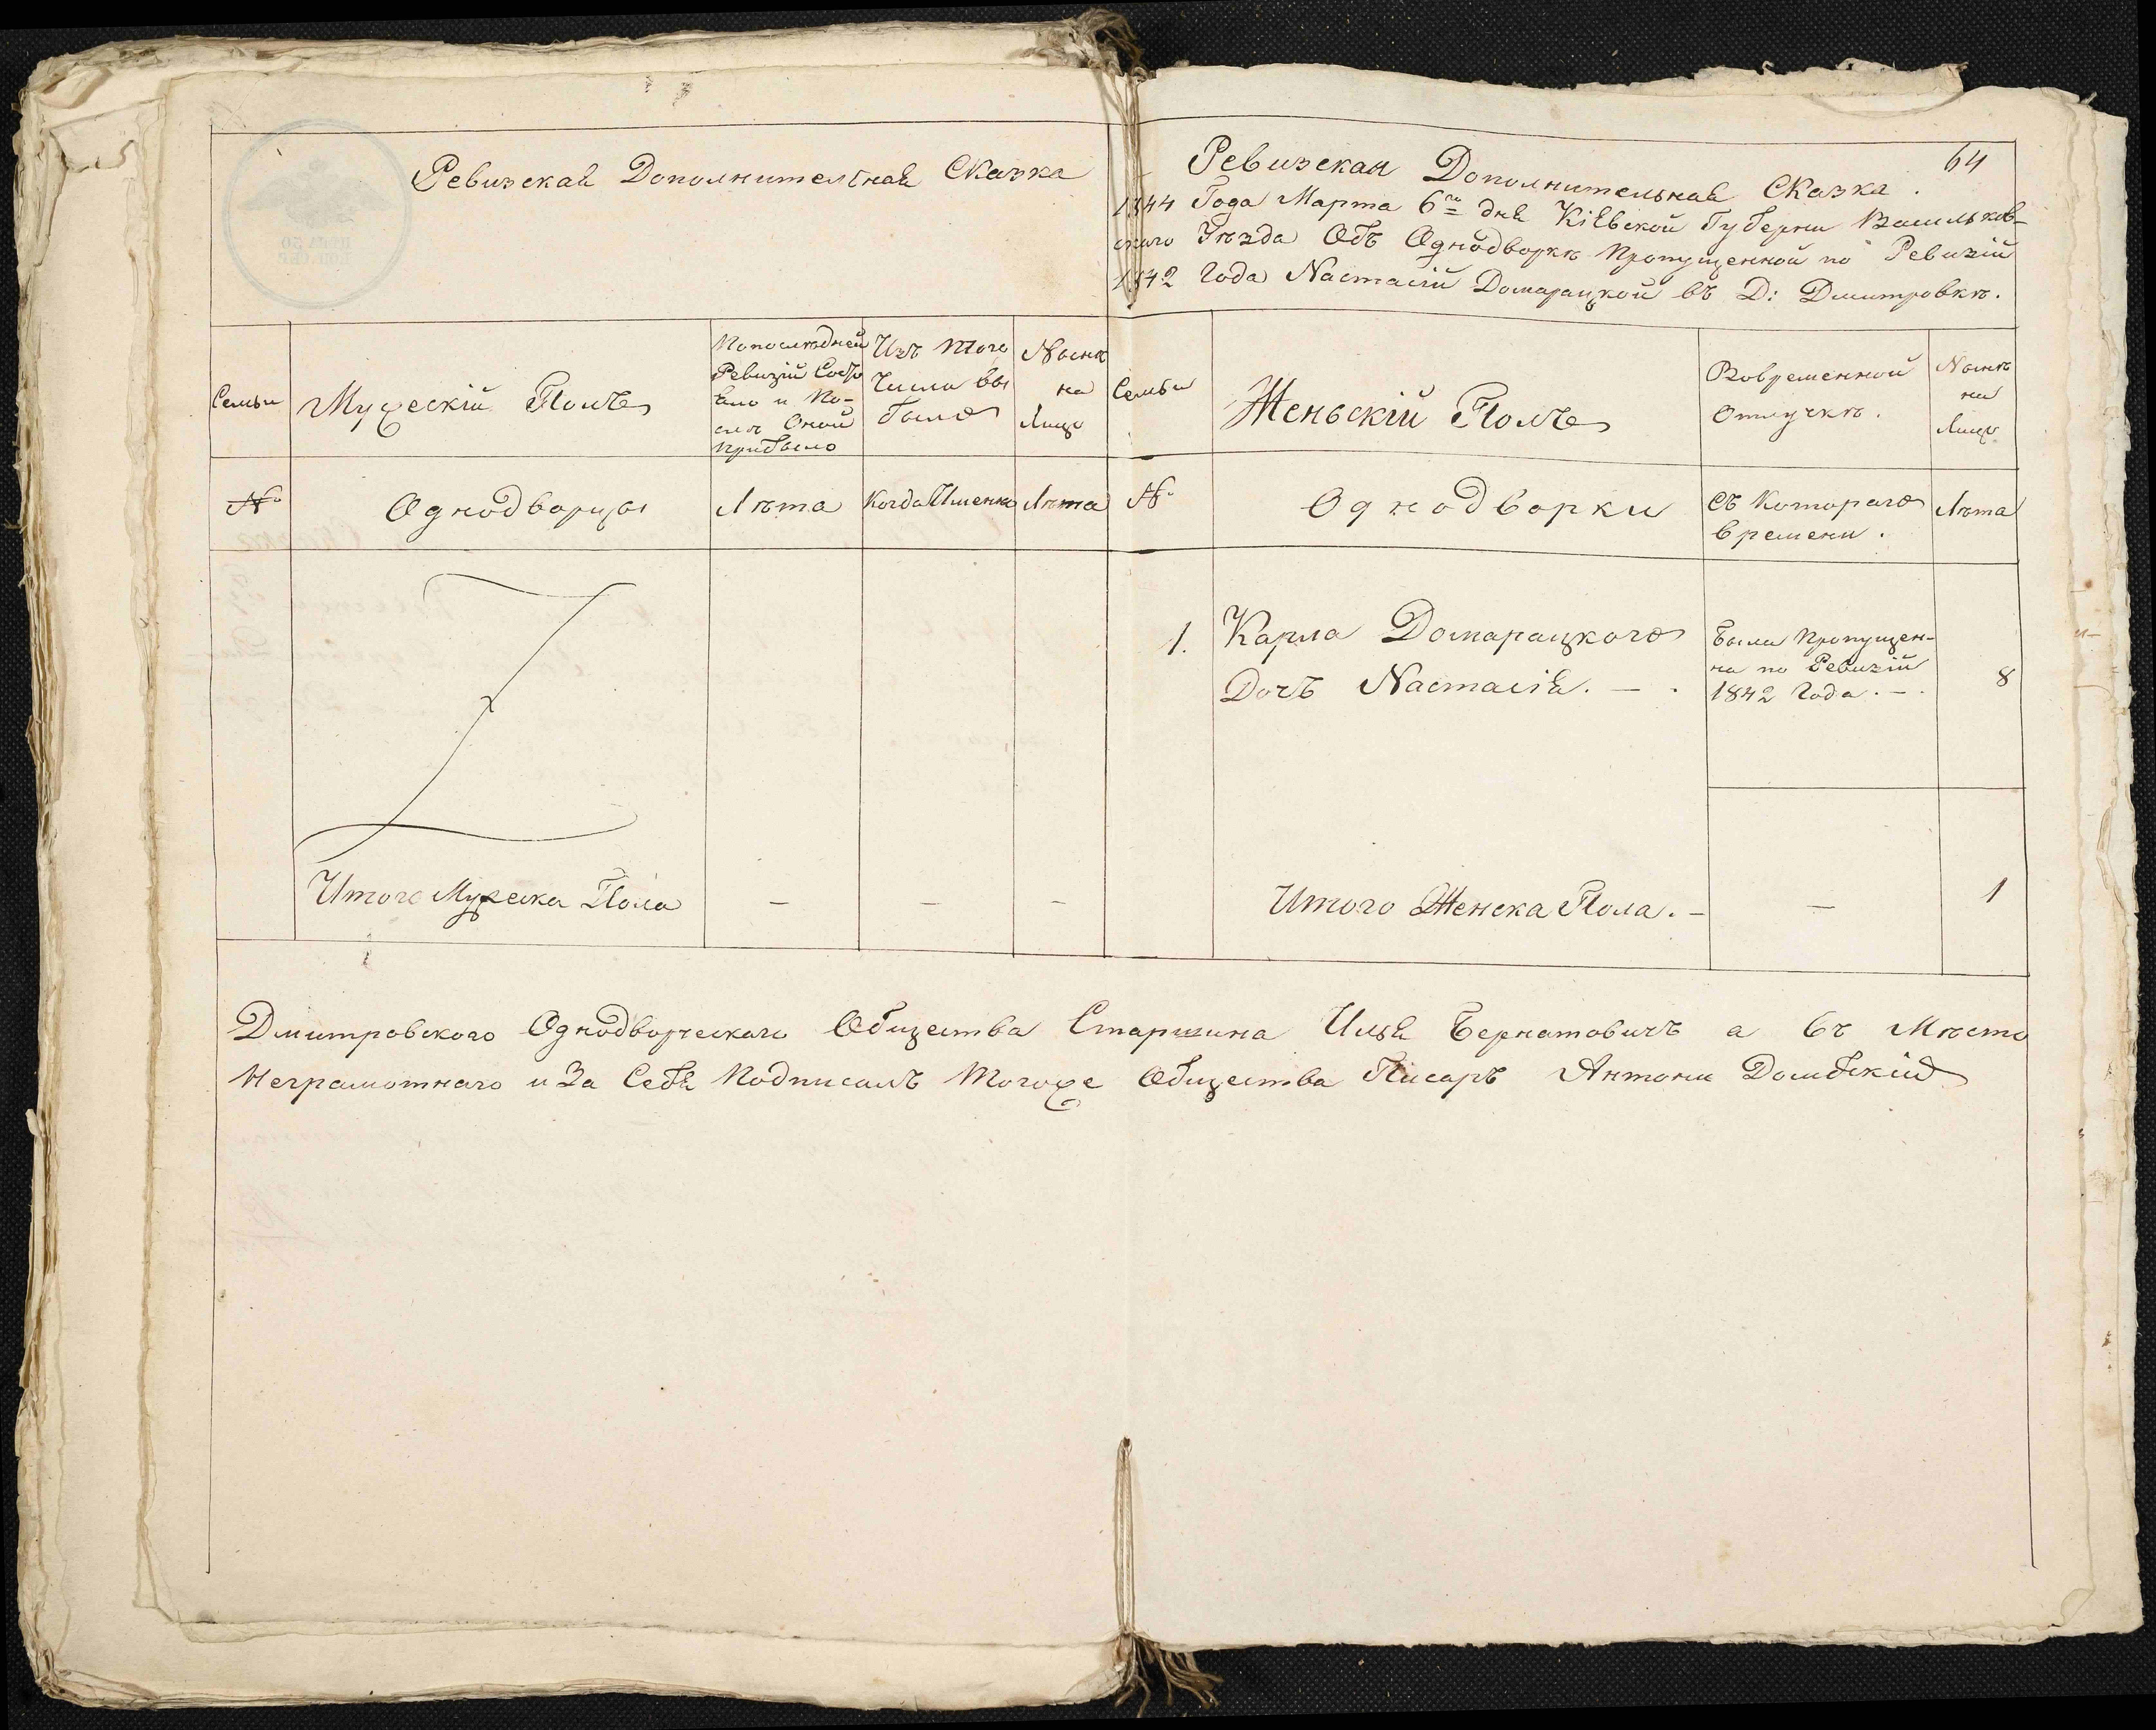 Ревизская Дополнителная Сказка
64
Ревизская Дополнительная Сказка.
1844 Года Марта 6го дня Кіевской Губерни Васильков-
ского Уезда Объ Однодворкѣ пропущенной по Ревизій
1842 Года Настасіи Домарацкой въ Д: Дмитровкѣ.
Семьи
Мужескій Полъ
По последней
Ревизіи Состо
яло и По-
слѣ Оной
прибыло
Изъ того
Числа вы
было
Нынѣ
на
Лицо
Семьи
Женьскій Полъ
Вовременной
Отлучкѣ.
Нынѣ
на
Лицо
№
Однодворцы
Лѣта
Когда Именно
Лѣта
№
Однодворки
Съ Котораго
времени.
Лѣта
1.
Карла Домарацкого
Дочъ Настасія. — .
Была пропущен-
на по Ревизіи
1842 Года. — .
8
Итого Мужеска Пола
—
—
—
Итого Женска Пола. —
—
1
Дмитровского Однодворческаго Общества Старшина Илья Бернатовичъ а въ Мѣсто
Неграмотнаго и За Себя Подписалъ Тогоже Общества Писаръ Антони Домбскій